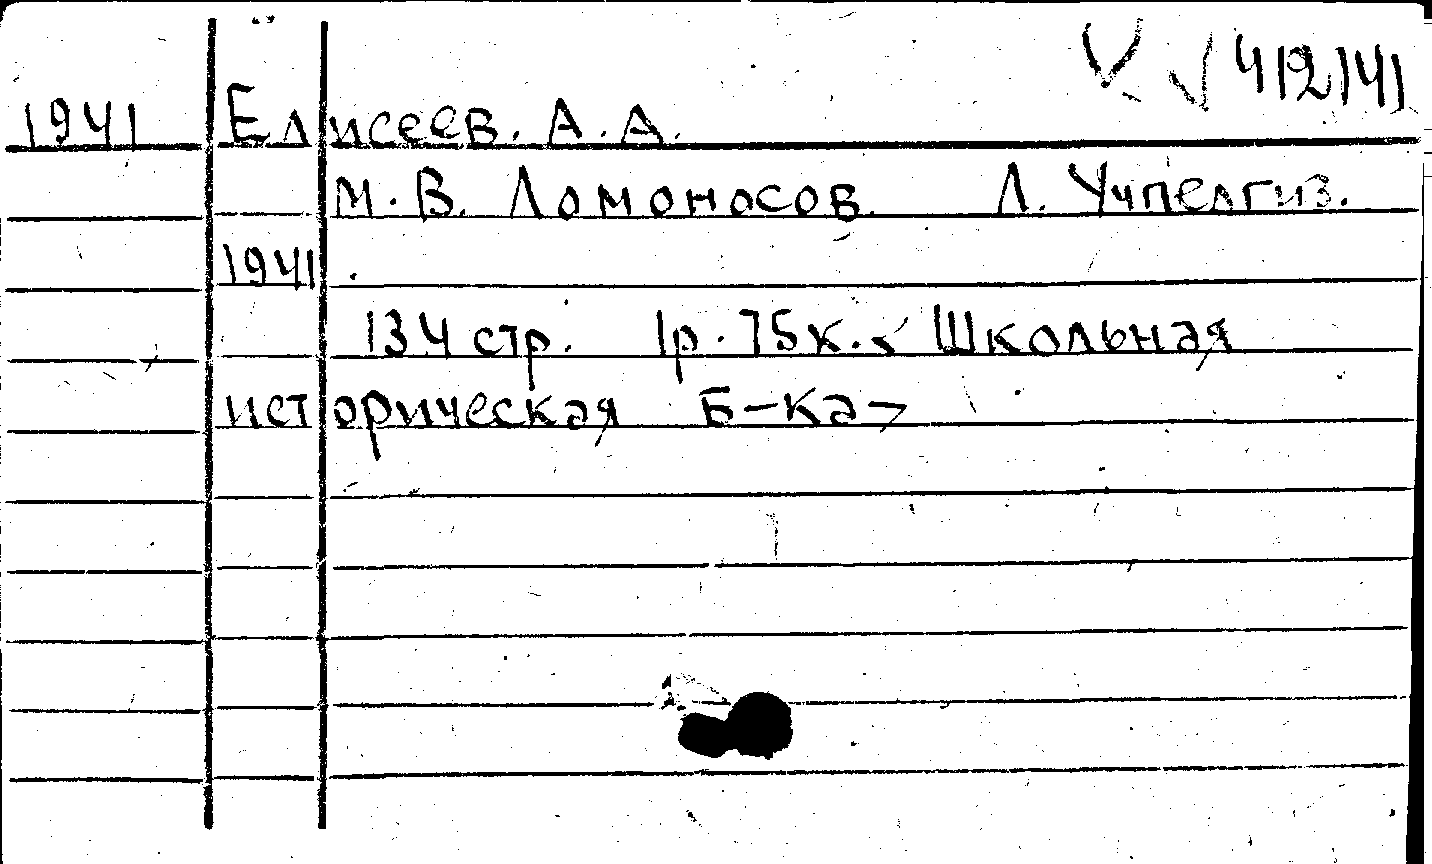 √ √ 412141
1941 Елисеев. А. А.
М. В. Ломоносов. Л. Учпедгиз.
1941.
134 стр. 1р. 75к. < Школьная
историческая Б-ка >